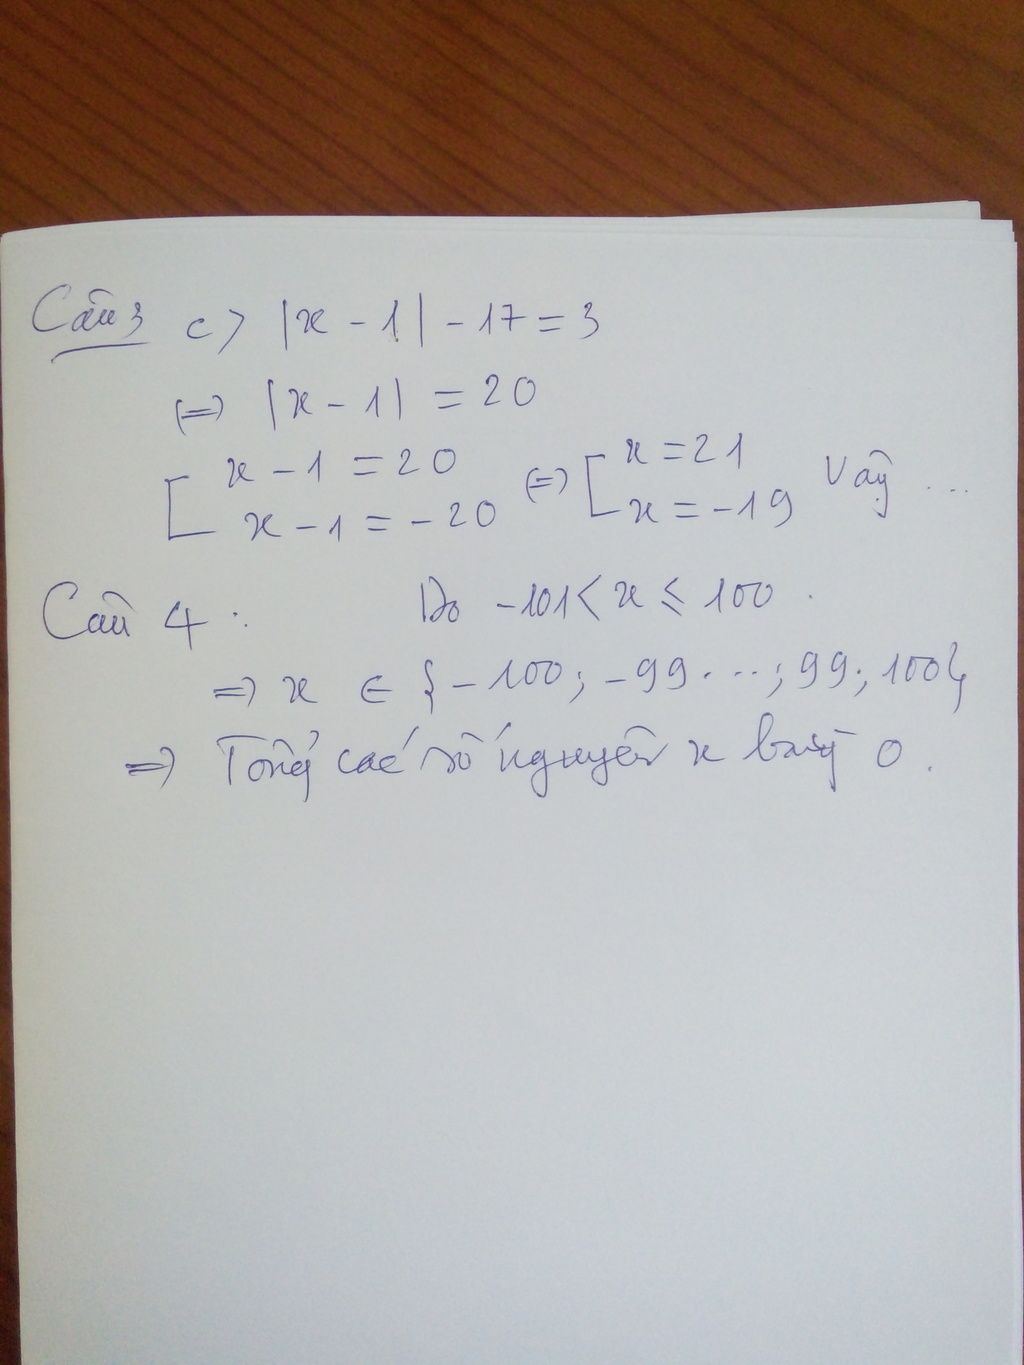 Câu 3 c) |x - 1| - 17 = 3
(=) |x - 1| = 20
[ x - 1 = 20 (=) [ x = 21 Vậy ...
x - 1 = - 20 x = - 19
Câu 4 : Do -101 < x ≤ 100 .
=> x ∈ { - 100 ; - 99 ... ; 99 ; 100 }
=> Tổng các số nguyên x bằng 0 .